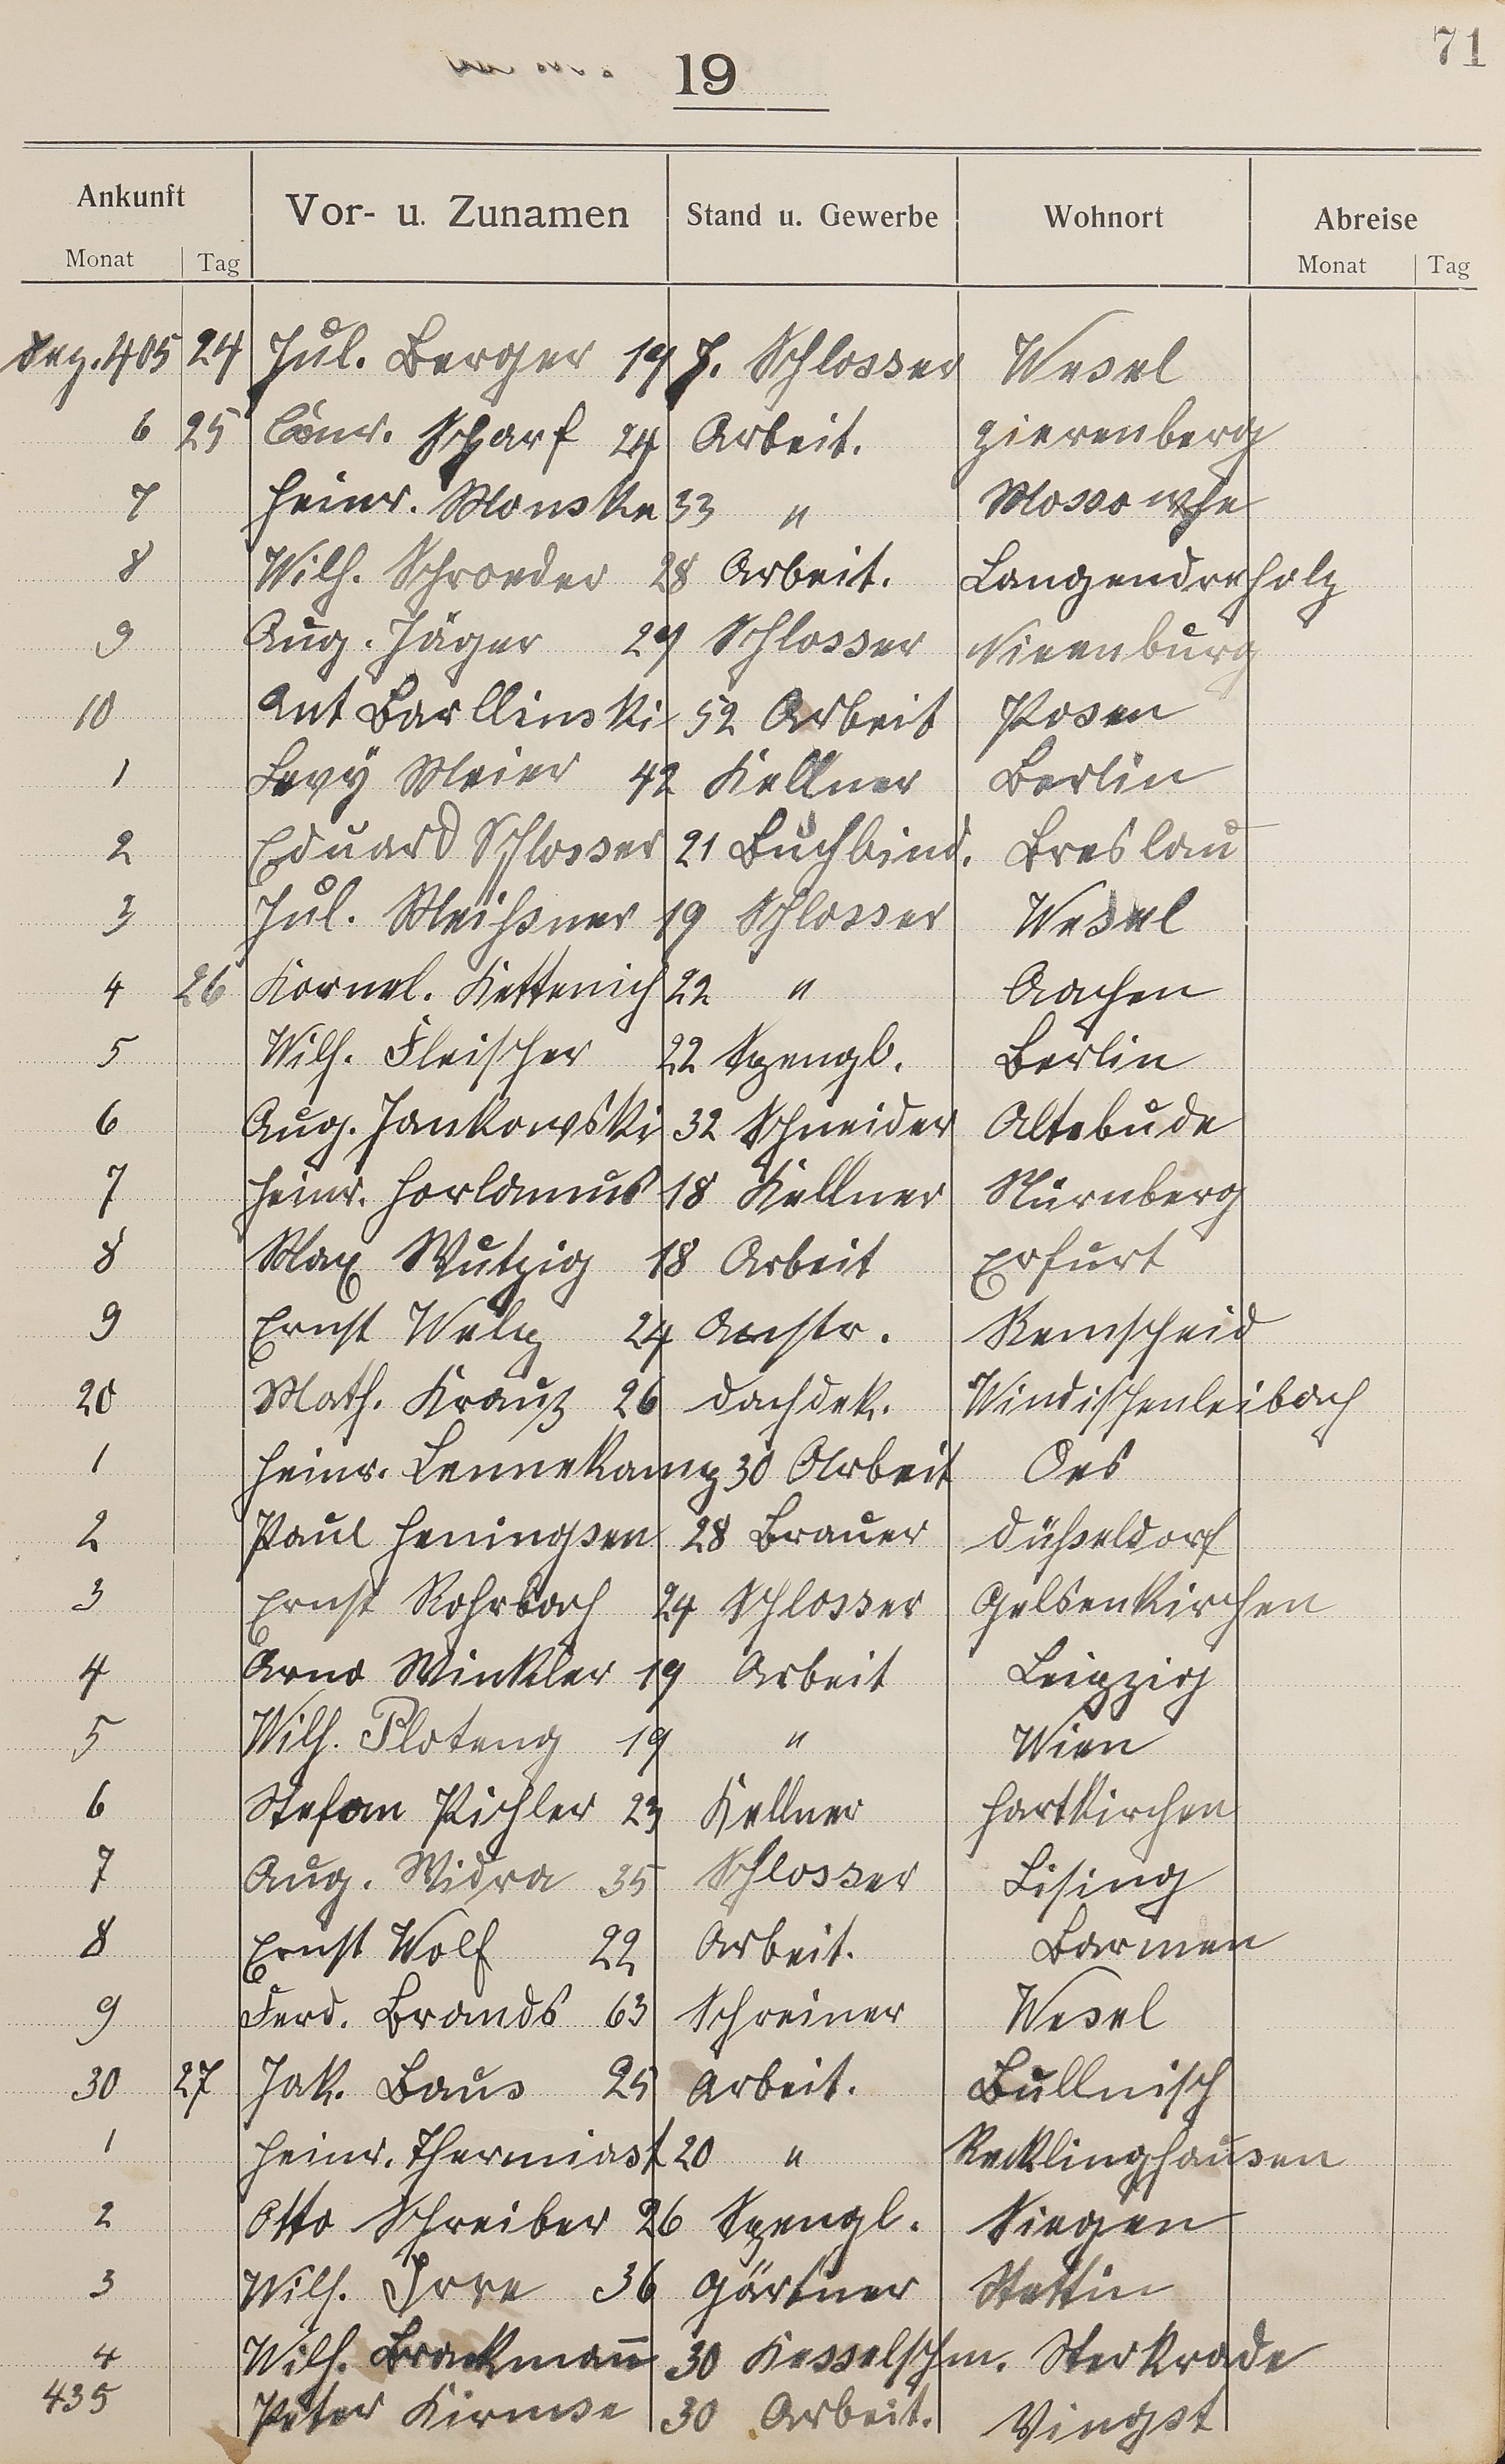 71
19
Ankunft Vor- u. Zunamen Stand u. Gewerbe Wohnort Abreise
Monat Tag Monat Tag
Dez. 405 24 Jul. Berger 19 J. Schlosser Wesel
6 25 Conr. Scharf 24 Arbeit. Zierenberg
7 Heinr. Monske 33 "
8 Wilh. Schroeder 28 Arbeit. Langendreholz
9 Aug. Jäger 29 Schlosser Nienburg
10 Ant Barllinski 52 Arbeit Posen
1 Levy Meier 42 Kellner Berlin
2 Eduard Schlosser 21 Buchbind. Breslau
3 Jul. Meißner 19 Schlosser Wesel
4 26 Kornel. Kettenich 22 " Aachen
5 Wilh. Fleischer 22 Spengl. Berlin
6 Aug. Jankowski 32 Schneider Altebude
7 Heinr. Horlamus 18 Kellner Nürnberg
8 Max Wutzig 18 Arbeit Erfurt
9 Ernst Welp 24 Anstr. Remscheid
20 Math. Krauz 26 Dachdek. Windischenleibach
1 Heinr. Lennekamp 30 Arbeit Oes
2 Paul Heningsen 28 Brauer Düßeldorf
3 Ernst Rohrbach 24 Schlosser Gelsenkirchen
4 Arno Winkler 19 Arbeit Leipzig
5 Wilh. Ploteng 19 " Wien
6 Stefan Pichler 23 Kellner Hartkirchen
7 Aug. Widra 35 Schlosser Lising
8 Ernst Wolf 22 Arbeit. Barmen
9 Ferd. Brands 63 Schreiner Wesel
30 27 Jak. Baus 25 Arbeit. Büllnisch
1 Heinr. Thermiast 20 " Recklinghausen
2 Otto Schreiber 26 Spengl. Siegen
3 Wilh. Irre 36 Gärtner Stettin
4 Wilh. Brackmann̅ 30 Kesselschm. Sterkrade
435 Peter Kirmse 30 Arbeit. Vingst